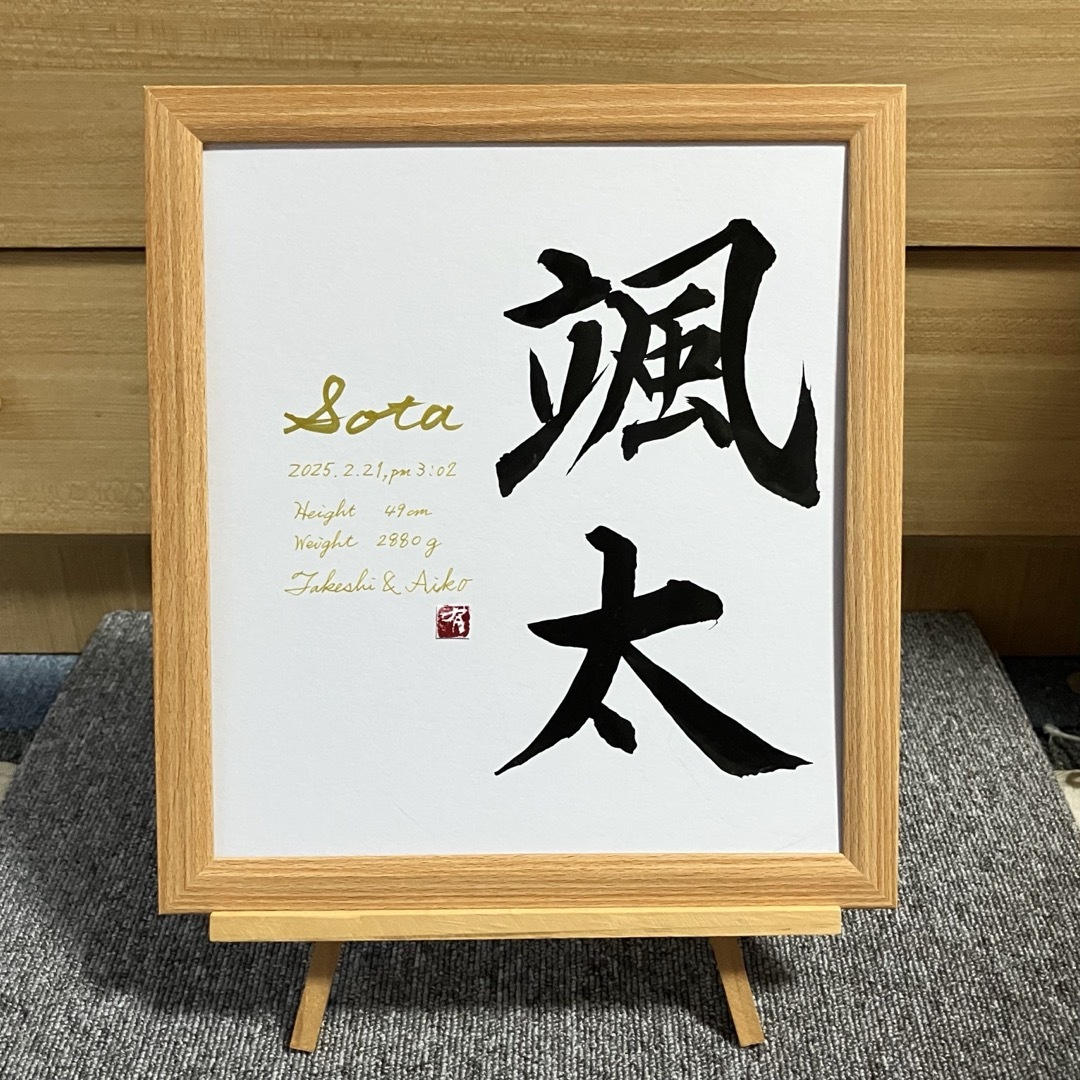 颯太
Sota
2025.2.21, pm 3:02
Height 49cm
Weight 2880g
Takeshi & Aiko